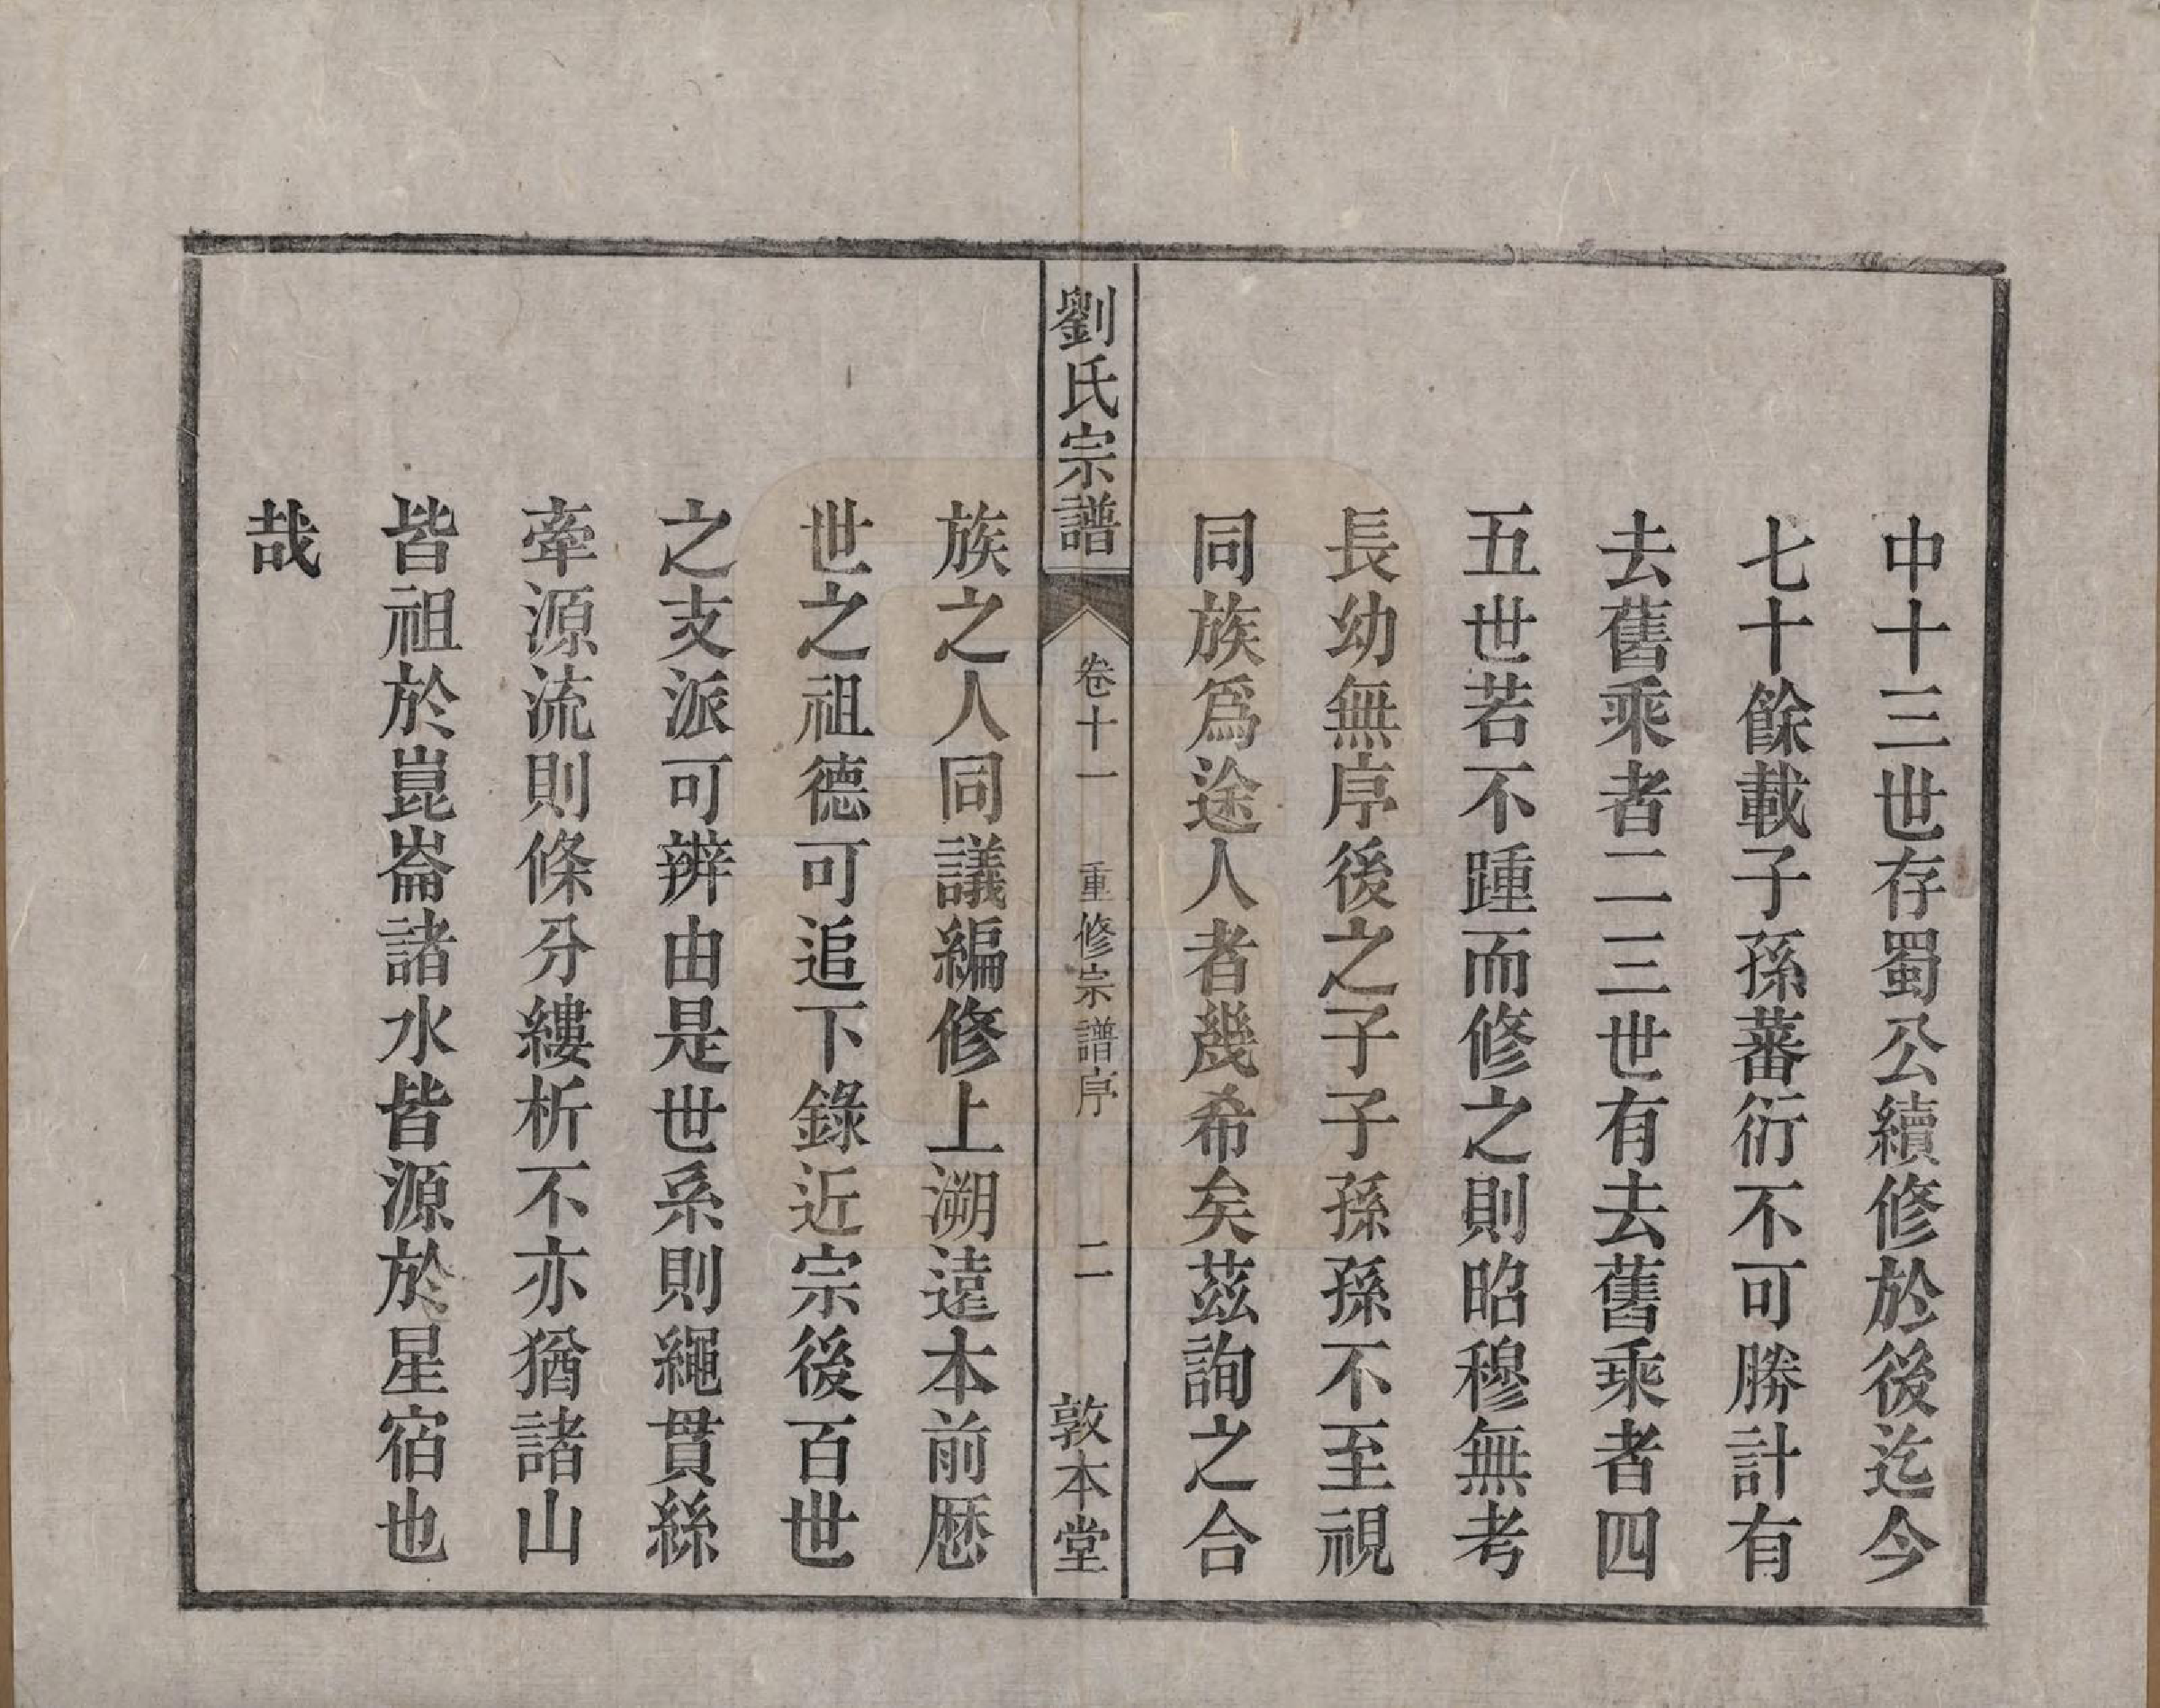 中十三世存蜀公續修於後迄今
七十餘載子孫蕃衍不可勝計有
去舊乘者二三世有去舊乘者四
五世若不踵而修之則昭穆無考
長幼無序後之子子孫孫不至視
同族爲途人者幾希矣茲詢之合
劉氏宗譜
卷十一
重修宗譜序
二
敦本堂
族之人同議編修上溯遠本前歷
世之祖德可追下錄近宗後百世
之支派可辨由是世系則繩貫絲
牽源流則條分縷析不亦猶諸山
皆祖於崑崙諸水皆源於星宿也
哉